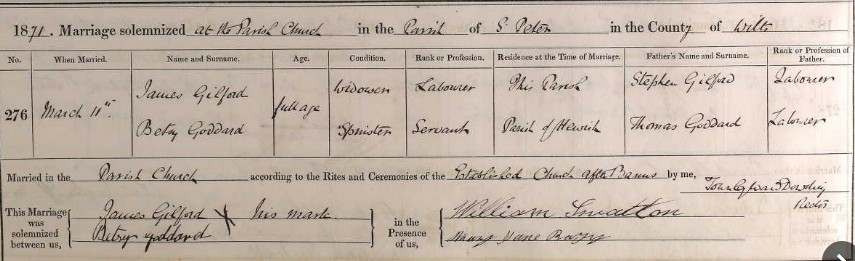 1871. Marriage solemnized at the Parish Church in the Parish of St Peter in the County of Wilts
No. When Married. Name and Surname. Age. Condition. Rank or Profession. Residence at the Time of Marriage. Father's Name and Surname. Rank or Profession of Father.
276 March 11th. James Gilford full age Widower Labourer This Parish Stephen Gilford Labourer
Betsy Goddard Spinster Servant Parish of Thomas Goddard Labourer
Married in the Parish Church according to the Rites and Ceremonies of the Established Church after Banns by me,
Rector
This Marriage was solemnized between us, James Gilford X his mark in the Presence of us, William Swatton
Betsy Goddard Mary Jane